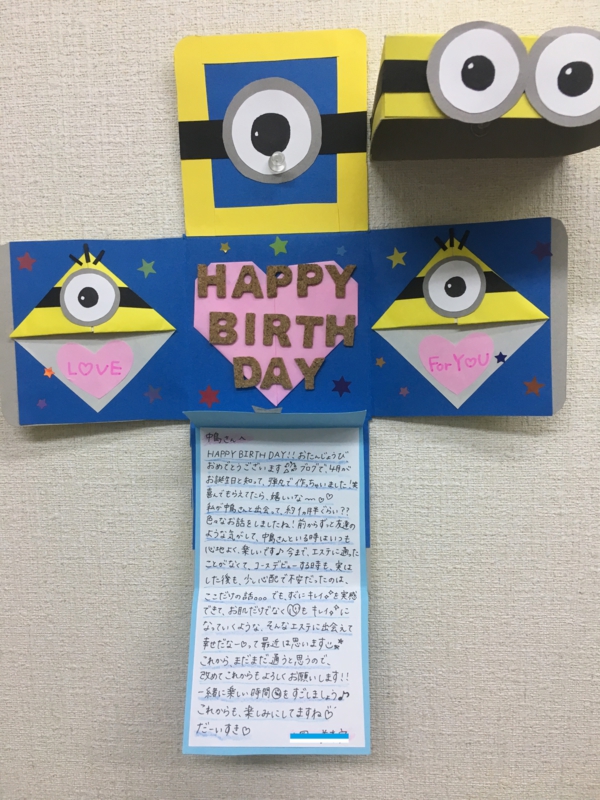 HAPPY
BIRTH
DAY
LOVE
For YOU
中島さんへ
HAPPY BIRTH DAY!! おたんじょうび
おめでとうございます ブログで、4月が
お誕生日と知って、弾丸で作っちゃいました!笑
喜んでもらえてたら、嬉しいな〜♡♡
私が中島さんと出会って、約1ヵ月半くらい??
色々なお話をしましたね!前からずっと友達の
ような気がして、中島さんといる時はいつも
心地よく、楽しいです♪今まで、エステに通った
ことがなくて、コースデビューする時も、実は
した後も、少し心配で不安だったのは、
ここだけの話。。。でも、すぐにキレイを実感
できて、お肌だけでなく心もキレイに
なっていくような、そんなエステに出会えて
幸せだな〜♡って最近は思います
これから、まだまだ通うと思うので、
改めてこれからもよろしくお願いします!!
一緒に楽しい時間をすごしましょう♪
これからも、楽しみにしてますね♡
だーいすき♡